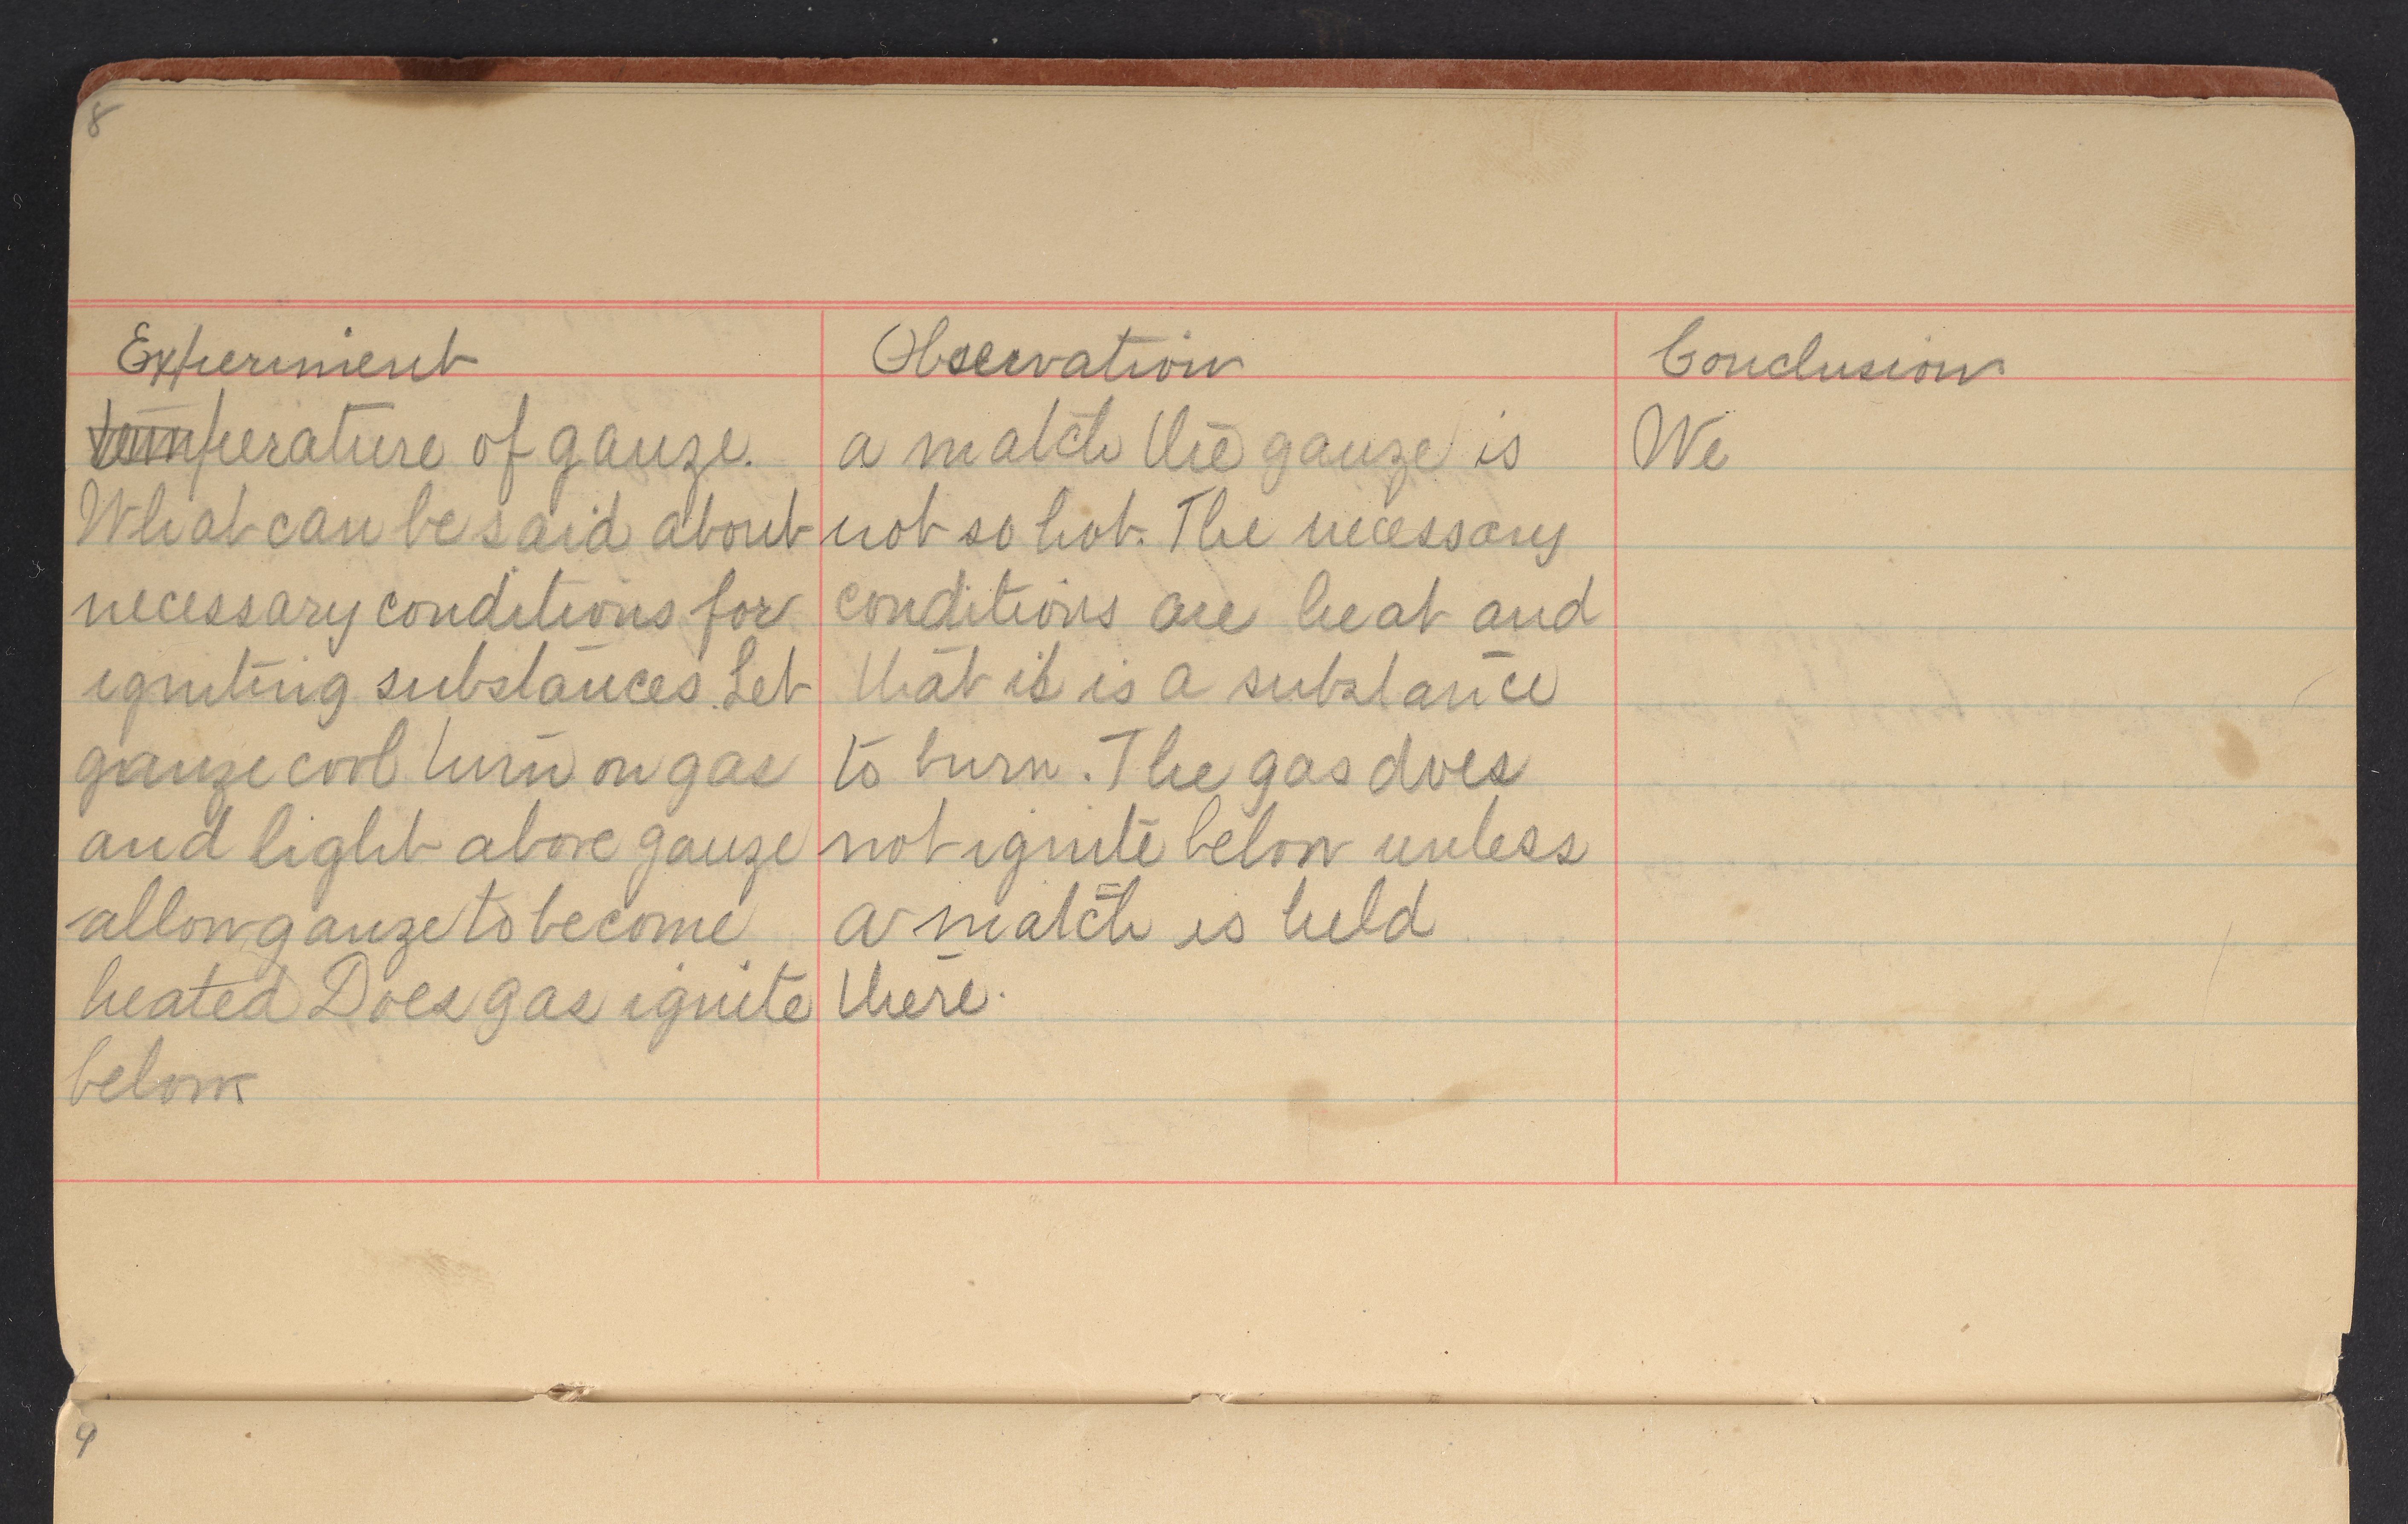 8
Experiment
temperature of gauze.
What can be said about
necessary conditions for
igniting substances. Let
gauze cool turn on gas
and light above gauze
allow gauze to become
heated Does gas ignite
below
Observation
a match the gauze is
not so hot. The necessary
conditions are heat and
that it is a substance
to burn. The gas does
not ignite below unless
a match is held
there.
Conclusion
We
9